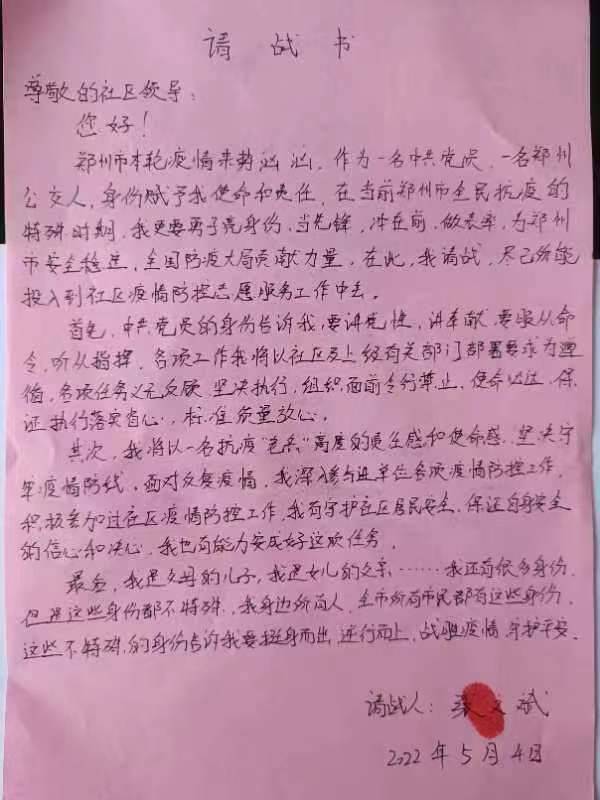 请战书
尊敬的社区领导：
您好！
郑州市本轮疫情来势汹汹，作为一名中共党员，一名郑州
公交人，身份赋予我使命和责任，在当前郑州市全民抗疫的
特殊时期，我更要勇于亮身份，当先锋，冲在前，做表率，为郑州
市安全稳定，全国防疫大局贡献力量，在此，我请战，尽己所能
投入到社区疫情防控志愿服务工作中去。
首先，中共党员的身份告诉我，要讲党性，讲奉献，要服从命
令，听从指挥，各项工作我将以社区及上级有关部门部署要求为遵
循，各项任务义无反顾，坚决执行，组织面前令行禁止，使命必达，保
证执行落实省心，标准质量放心。
其次，我将以一名抗疫“老兵”高度的责任感和使命感，坚决守
牢疫情防线，面对反复疫情，我深入参与进单位各项疫情防控工作，
积极参加过社区疫情防控工作，我有守护社区居民安全，保证自身安全
的信心和决心，我也有能力完成好这项任务。
最后，我是父母的儿子，我是女儿的父亲……我还有很多身份，
但是这些身份都不特殊，我身边所有人，全市所有市民都有这些身份，
这些不特殊的身份告诉我要挺身而出，逆行而上，战胜疫情，守护平安。
请战人：张文斌
2022年5月4日